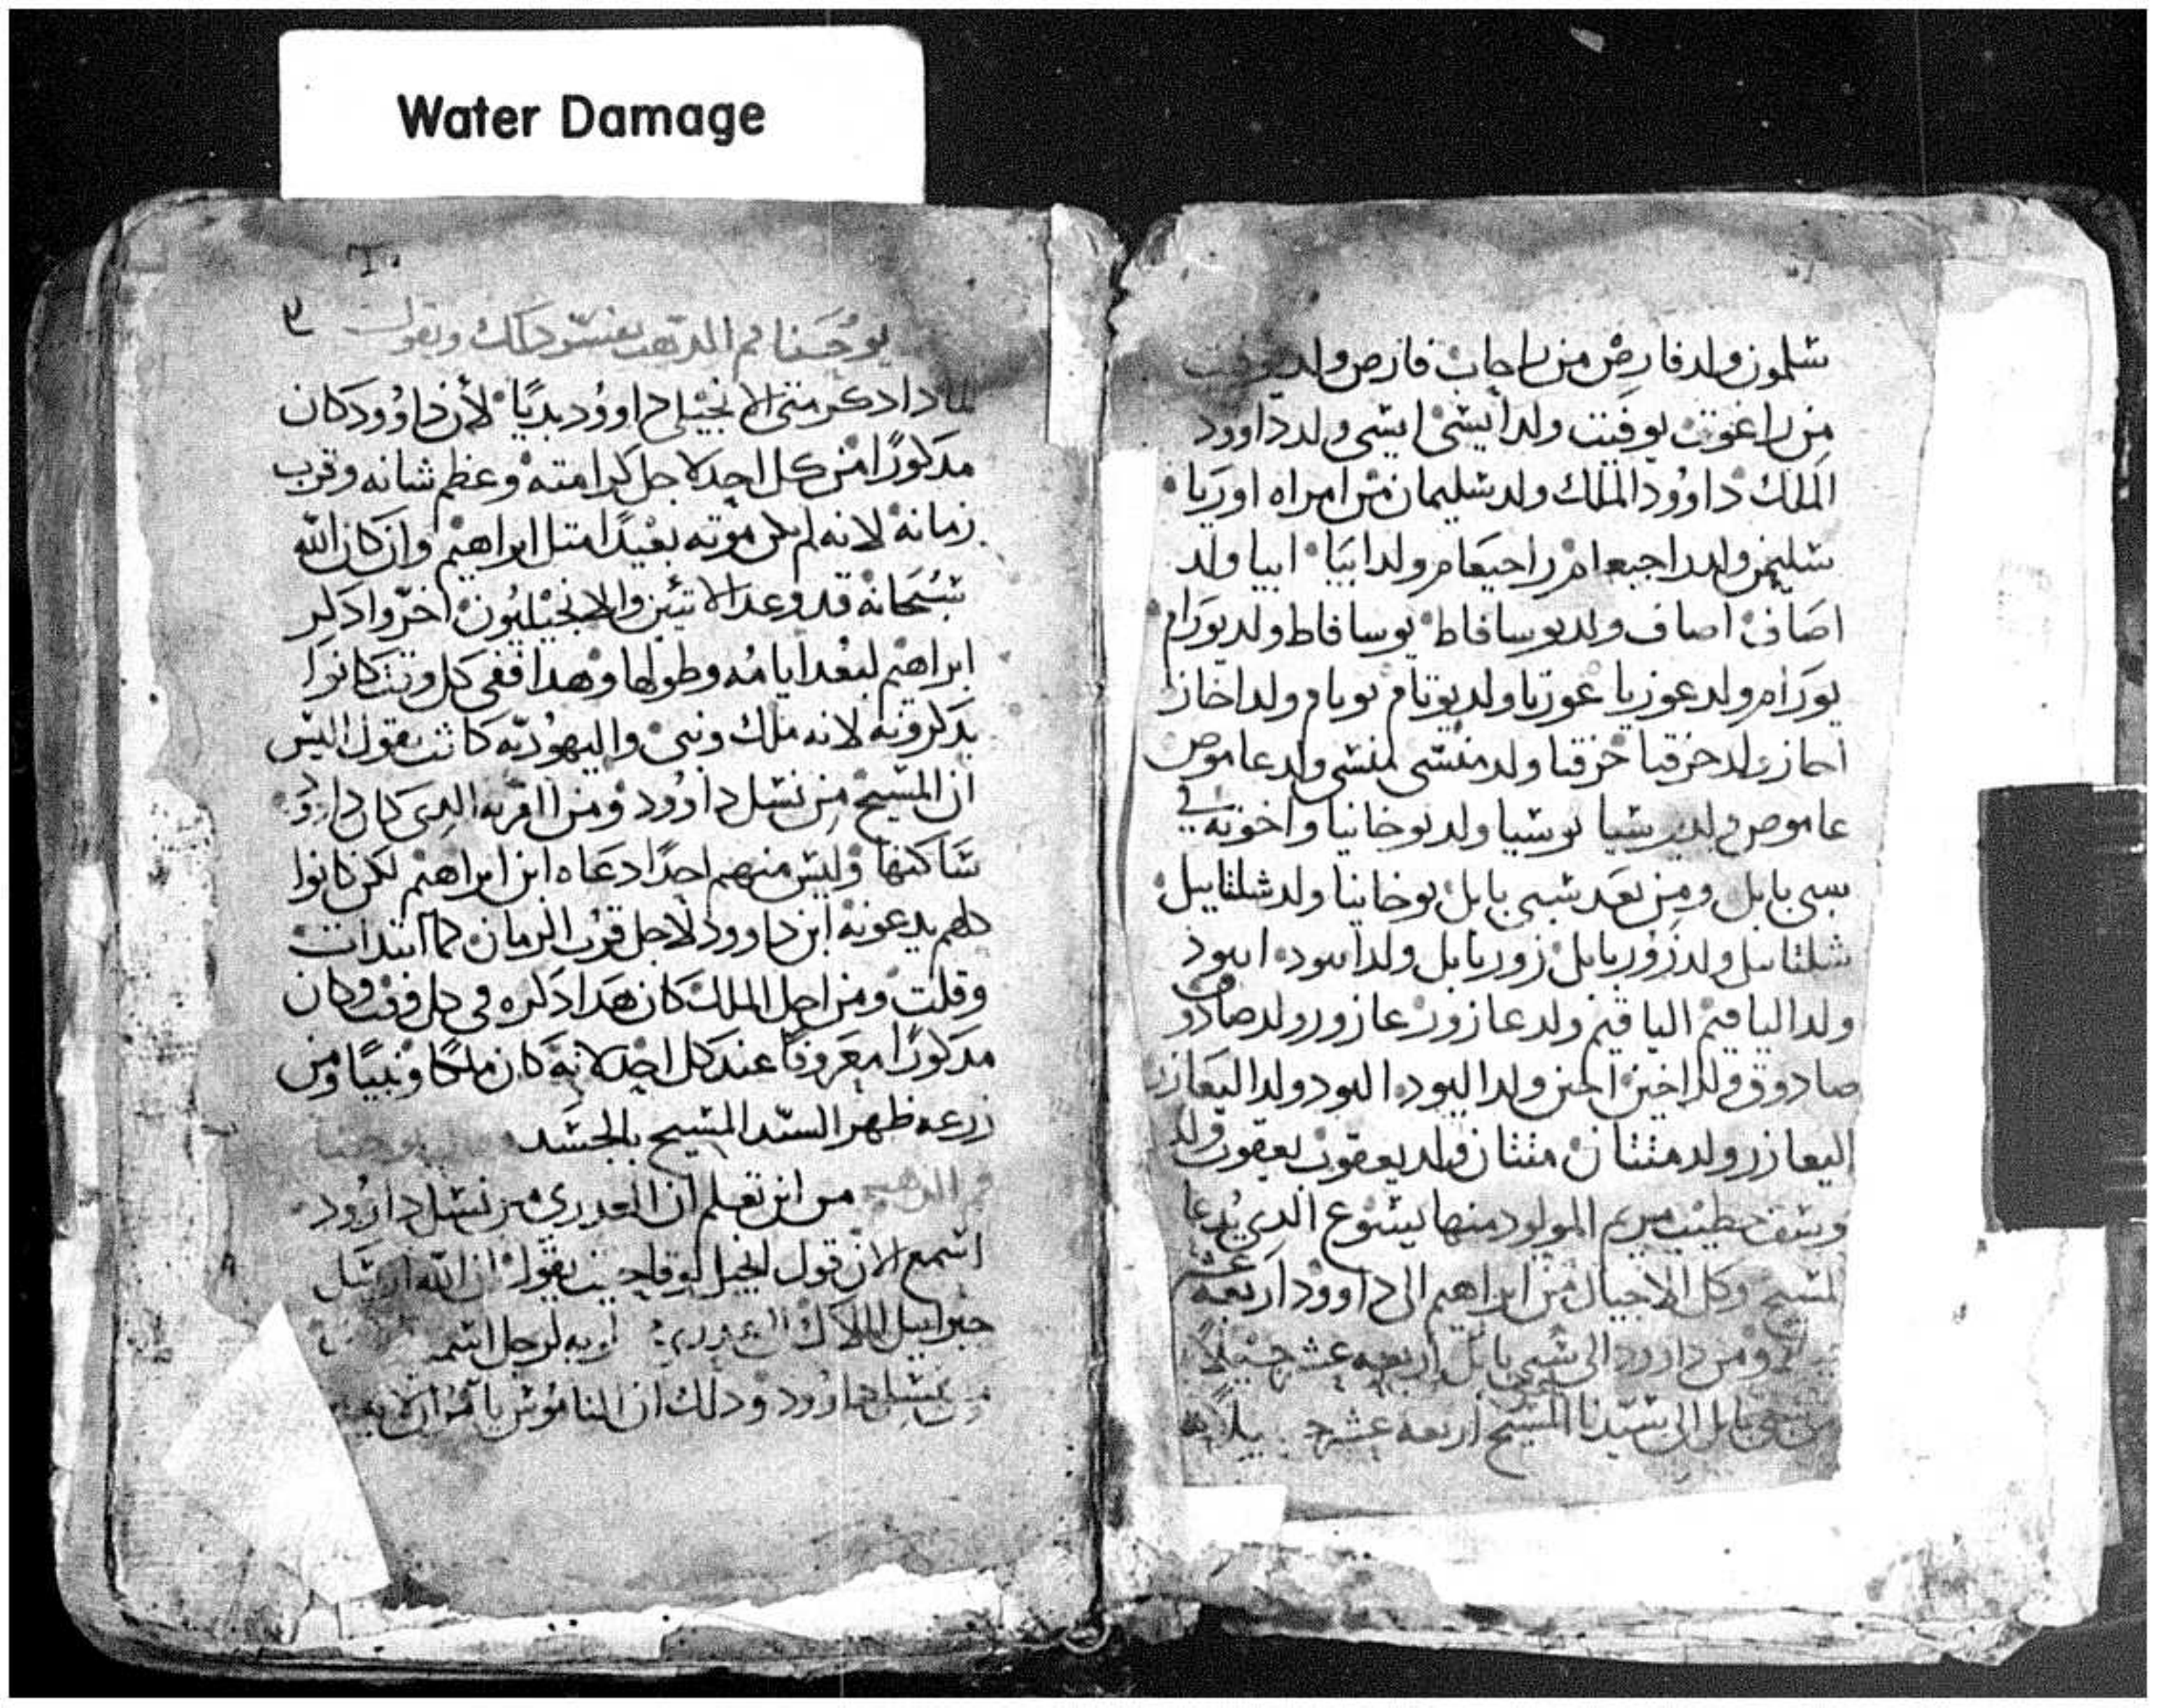 Water Damage
شلمون ولد فارص من راحاب فارص ولد يوفيت
من راعوت يوفيت ولد ايشى ايشى ولد داوود
الملك داوود الملك ولد سليمان من امراه اوريا
سليمن ولد راحبعام راحبعام ولد ابيا ابيا ولد
اصاف اصاف ولد يوسافاط يوسافاط ولد يورام
يورام ولد عوزيا عوزيا ولد يوتام يوتام ولد احاز
احاز ولد حزقيا حزقيا ولد منشى منشى ولد عاموص
عاموص ولد يوشيا يوشيا ولد يوخانيا واخوته في
سبى بابل ومن بعد سبى بابل يوخانيا ولد شلتاييل
شلتاييل ولد زوربابل زوربابل ولد ابيود ابيود
ولد الياقيم الياقيم ولد عازور عازور ولد صادوق
صادوق ولد اخين اخين ولد اليود اليود ولد اليعازر
اليعازر ولد متتان متتان ولد يعقوب يعقوب ولد
يوسف خطيب مريم المولود منها يسوع الدي يدعا
المسيح وكل الاجيال من ابراهيم الى داوود اربعة عشر
ومن داوود الى سبى بابل اربعه عشر جيلاً
سبى بابل الى سيدنا المسيح اربعه عشر جيلاً
٣
يوحنا فم الدهب يفسر دلك ويقول
لمادا دكر متى الانجيلي داوود بديًا لأن داوود كان
مدكورًا من كل احد لاجل كرامته وعظم شانه وقرب
زمانه لانه لم يكن موته بعيدًا متل ابراهيم وان كان الله
سبحانه قد وعد الاتنين والانجيليون اخروا دكر
ابراهيم لبعد ايامه وطولها وهدا ففى كل وقت كانوا
يدكرونه لانه ملك ونبى واليهوديه كانت تقول اليس
ان المسيح من نسل داوود ومن القريه الدى كان داوود
ساكنها وليس منهم احدًا دعاه ابن ابراهيم لكن كانوا
كلهم يدعونه ابن داوود لاجل قرب الزمان كما ابتدات
وقلت ومن اجل الملك كان هدا دكره فى كل وقت وكان
مدكورًا معروفًا عند كل احد لانه كان ملكًا ونبيًا ومن
زرعه ظهر السيد المسيح بالجسد يوحنا
فم الدهب من اين تعلم ان العدرى من نسل داوود
اسمع الان قول انجيل لوقا حين يقول ان الله ارسل
جبراييل الملاك لرجل اسمه
من نسل داوود ودلك ان الناموس يامر ان